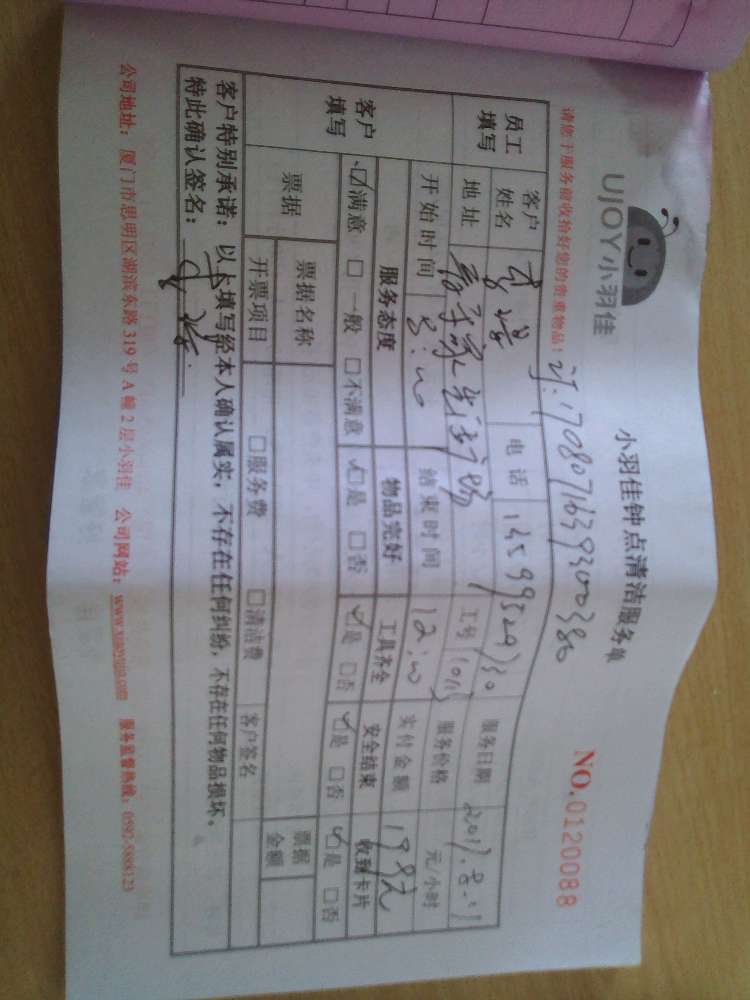 UJOY小羽佳
小羽佳钟点清洁服务单
NO.0120088
请您于服务前收拾好您的贵重物品!
员工填写 客户姓名 电话 服务日期
地址 工号 1013 服务价格 元/小时
客户填写 开始时间 8:00 结束时间 12:00 实付金额
服务态度 物品完好 工具齐全 安全结束 收到卡片
☑满意 □一般 □不满意 ☑是 □否 ☑是 □否 ☑是 □否 ☑是 □否
票据 票据名称 票据金额
开票项目 □服务费 □清洁费 客户签名
客户特别承诺:以上填写经本人确认属实,不存在任何纠纷,不存在任何物品损坏。
特此确认签名:
公司地址:厦门市思明区湖滨东路319号A幢2层小羽佳 公司网站:www.xiaoyujia.com 服务监督热线:0592-5888123